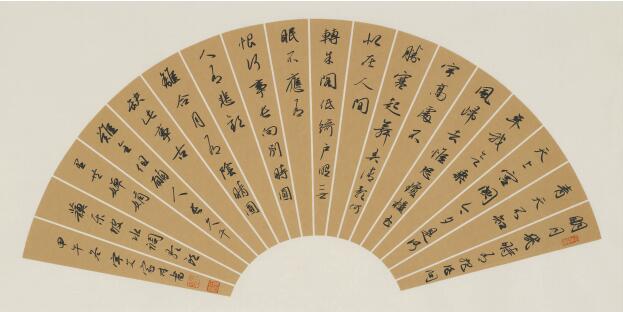 明月幾時有把酒問
青天不知
天上宮闕今夕是何
年我欲乘
風歸去惟恐瓊樓玉
宇高處不
勝寒起舞弄清影何
似在人間
轉朱閣低綺戶照無
眠不應有
恨何事長向別時圓
人有悲歡
離合月有陰晴圓
缺此事古
難全但願人長久千
里共嬋娟
蘇東坡水調歌頭
甲午冬